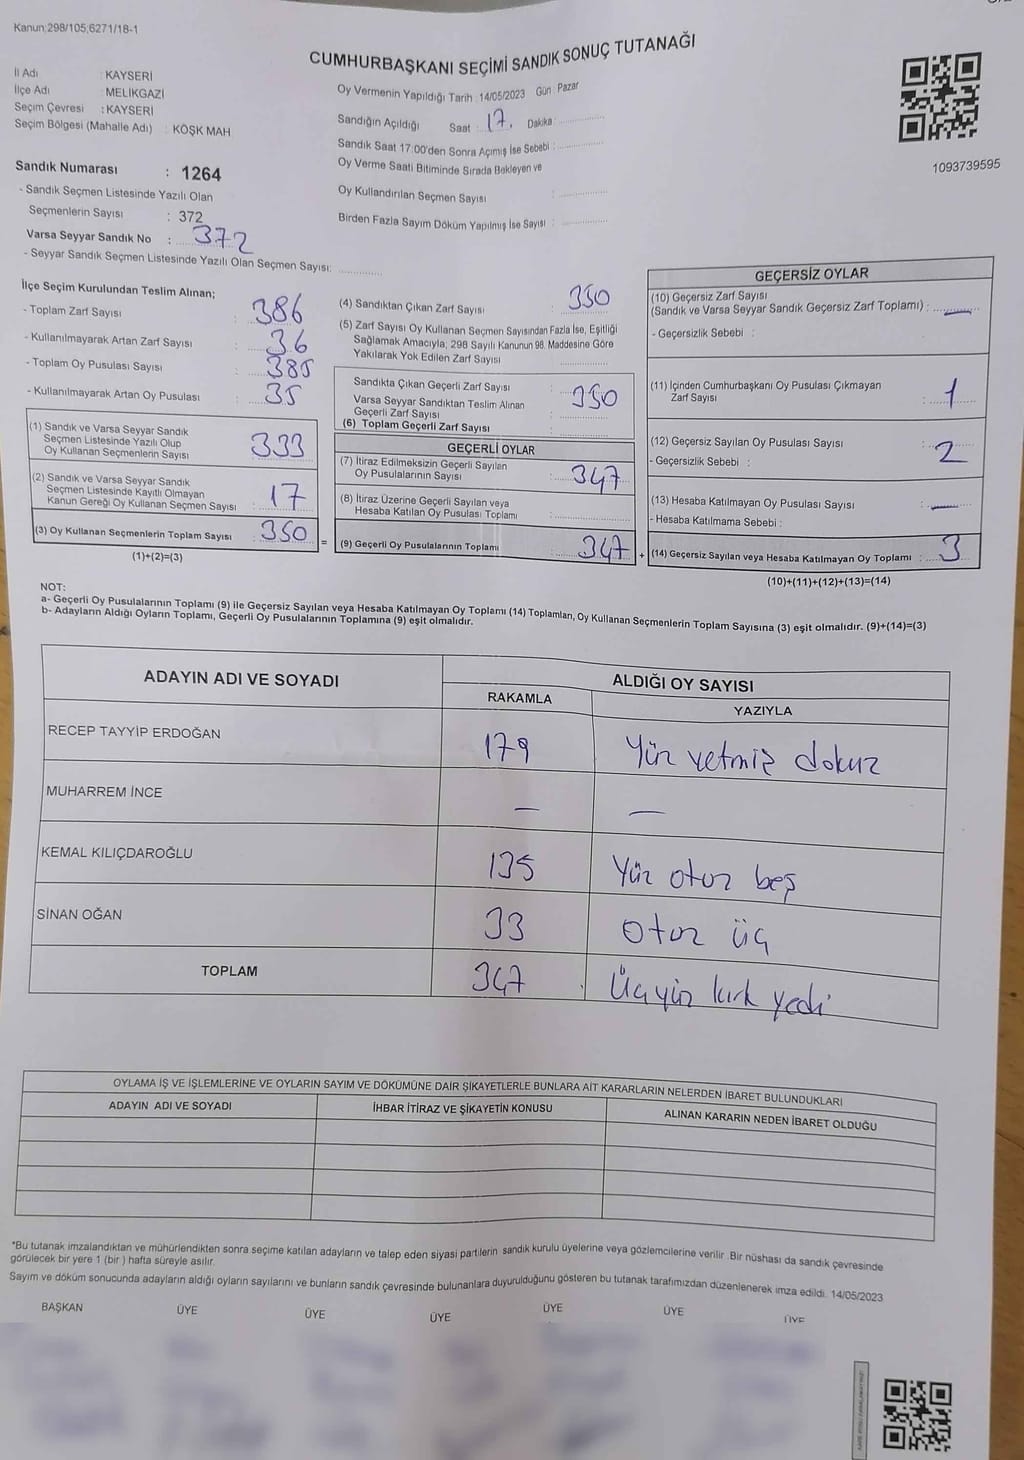 Kanun;298/105;6271/18-1
CUMHURBAŞKANI SEÇİMİ SANDIK SONUÇ TUTANAĞI
İl Adı : KAYSERİ
İlçe Adı : MELİKGAZİ
Seçim Çevresi : KAYSERİ
Seçim Bölgesi (Mahalle Adı) : KÖŞK MAH
Sandık Numarası : 1264
- Sandık Seçmen Listesinde Yazılı Olan
Seçmenlerin Sayısı : 372
Varsa Seyyar Sandık No : 372
- Seyyar Sandık Seçmen Listesinde Yazılı Olan Seçmen Sayısı:
Oy Vermenin Yapıldığı Tarih :14/05/2023 Gün Pazar
Sandığın Açıldığı Saat : 17. Dakika :
Sandık Saat 17:00'den Sonra Açımış İse Sebebi :
Oy Verme Saati Bitiminde Sırada Bekleyen ve
Oy Kullandırılan Seçmen Sayısı :
Birden Fazla Sayım Döküm Yapılmış İse Sayısı :
1093739595
İlçe Seçim Kurulundan Teslim Alınan;
- Toplam Zarf Sayısı : 386
- Kullanılmayarak Artan Zarf Sayısı : 36
- Toplam Oy Pusulası Sayısı : 385
- Kullanılmayarak Artan Oy Pusulası : 35
(1) Sandık ve Varsa Seyyar Sandık
Seçmen Listesinde Yazılı Olup
Oy Kullanan Seçmenlerin Sayısı : 333
(2) Sandık ve Varsa Seyyar Sandık
Seçmen Listesinde Kayıtlı Olmayan
Kanun Gereği Oy Kullanan Seçmen Sayısı : 17
(3) Oy Kullanan Seçmenlerin Toplam Sayısı : 350
(1)+(2)=(3)
(4) Sandıktan Çıkan Zarf Sayısı : 350
(5) Zarf Sayısı Oy Kullanan Seçmen Sayısından Fazla İse, Eşitliği
Sağlamak Amacıyla; 298 Sayılı Kanunun 98. Maddesine Göre
Yakılarak Yok Edilen Zarf Sayısı :
Sandıkta Çıkan Geçerli Zarf Sayısı : 350
Varsa Seyyar Sandıktan Teslim Alınan
Geçerli Zarf Sayısı :
(6) Toplam Geçerli Zarf Sayısı :
GEÇERLİ OYLAR
(7) İtiraz Edilmeksizin Geçerli Sayılan
Oy Pusulalarının Sayısı : 347
(8) İtiraz Üzerine Geçerli Sayılan veya
Hesaba Katılan Oy Pusulası Toplamı :
= (9) Geçerli Oy Pusulalarının Toplamı : 347 +
GEÇERSİZ OYLAR
(10) Geçersiz Zarf Sayısı
(Sandık ve Varsa Seyyar Sandık Geçersiz Zarf Toplamı) : —
- Geçersizlik Sebebi :
(11) İçinden Cumhurbaşkanı Oy Pusulası Çıkmayan
Zarf Sayısı : 1
(12) Geçersiz Sayılan Oy Pusulası Sayısı : 2
- Geçersizlik Sebebi :
(13) Hesaba Katılmayan Oy Pusulası Sayısı : —
- Hesaba Katılmama Sebebi :
(14) Geçersiz Sayılan veya Hesaba Katılmayan Oy Toplamı : 3
(10)+(11)+(12)+(13)=(14)
NOT:
a- Geçerli Oy Pusulalarının Toplamı (9) ile Geçersiz Sayılan veya Hesaba Katılmayan Oy Toplamı (14) Toplamları, Oy Kullanan Seçmenlerin Toplam Sayısına (3) eşit olmalıdır. (9)+(14)=(3)
b- Adayların Aldığı Oyların Toplamı, Geçerli Oy Pusulalarının Toplamına (9) eşit olmalıdır.
ADAYIN ADI VE SOYADI ALDIĞI OY SAYISI
RAKAMLA YAZIYLA
RECEP TAYYİP ERDOĞAN 179 Yüz yetmiş dokuz
MUHARREM İNCE — —
KEMAL KILIÇDAROĞLU 135 Yüz otuz beş
SİNAN OĞAN 33 Otuz üç
TOPLAM 347 Üçyüz kırk yedi
OYLAMA İŞ VE İŞLEMLERİNE VE OYLARIN SAYIM VE DÖKÜMÜNE DAİR ŞİKAYETLERLE BUNLARA AİT KARARLARIN NELERDEN İBARET BULUNDUKLARI
ADAYIN ADI VE SOYADI İHBAR İTİRAZ VE ŞİKAYETİN KONUSU ALINAN KARARIN NEDEN İBARET OLDUĞU
*Bu tutanak imzalandıktan ve mühürlendikten sonra seçime katılan adayların ve talep eden siyasi partilerin sandık kurulu üyelerine veya gözlemcilerine verilir. Bir nüshası da sandık çevresinde
görülecek bir yere 1 (bir ) hafta süreyle asılır.
Sayım ve döküm sonucunda adayların aldığı oyların sayılarını ve bunların sandık çevresinde bulunanlara duyurulduğunu gösteren bu tutanak tarafımızdan düzenlenerek imza edildi. 14/05/2023
BAŞKAN ÜYE ÜYE ÜYE ÜYE ÜYE ÜYE